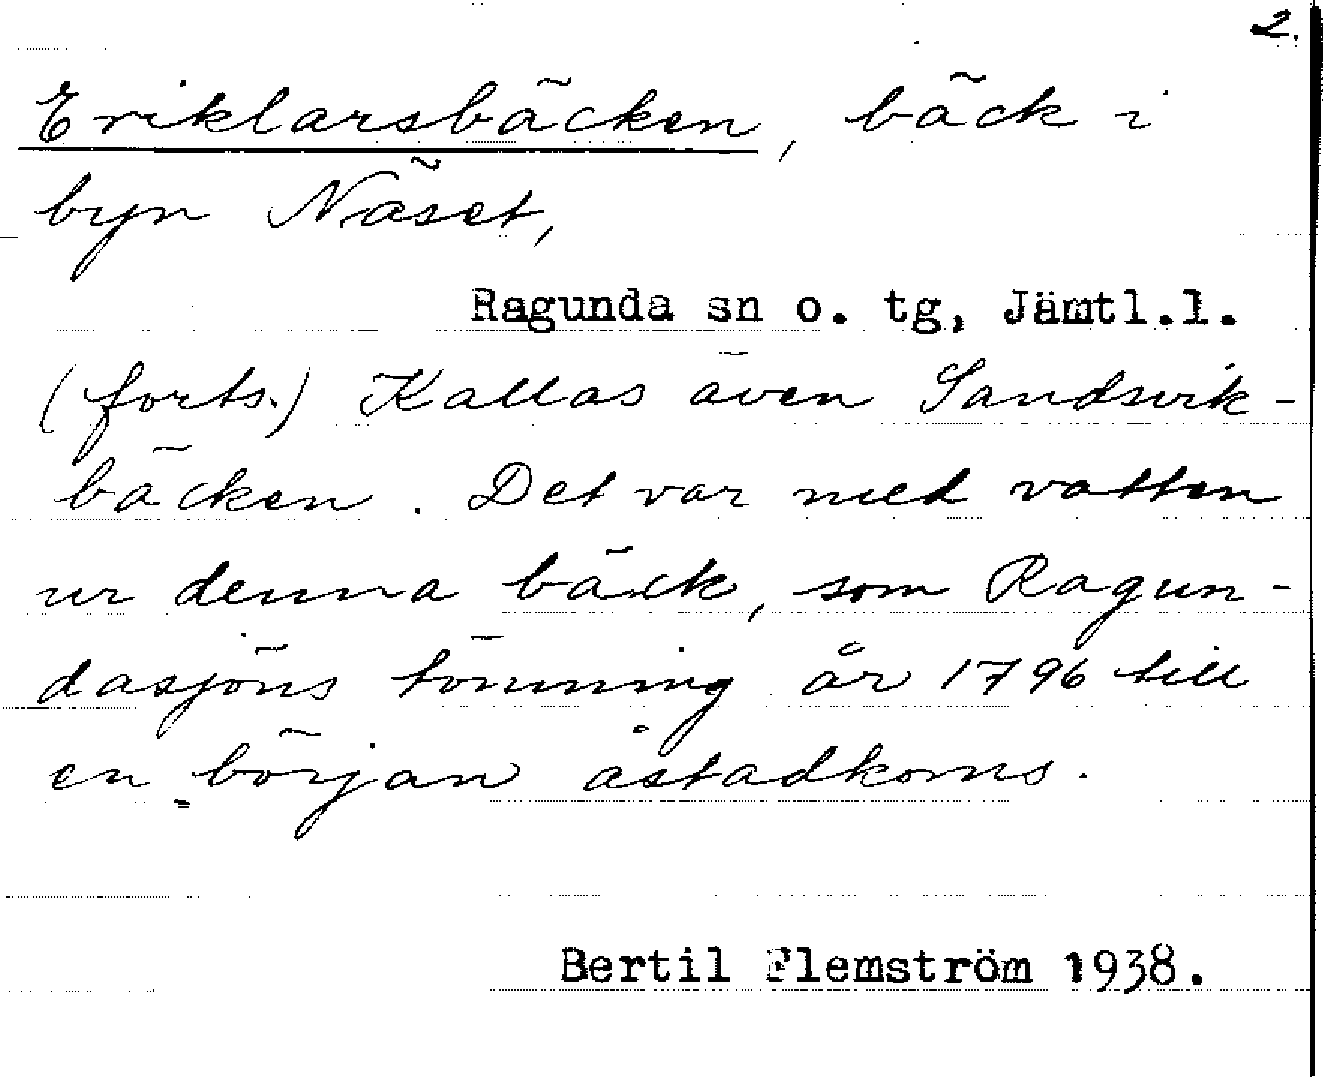 2.
Eriklarsbäcken, bäck i
byn Näset,
Ragunda sn o. tg, Jämtl.l.
(forts.) Kallas även Sandsvik-
bäcken. Det var med vatten
ur denna bäck, som Ragun-
dasjöns tömning år 1796 till
en början åstadkoms.
Bertil Flemström 1938.